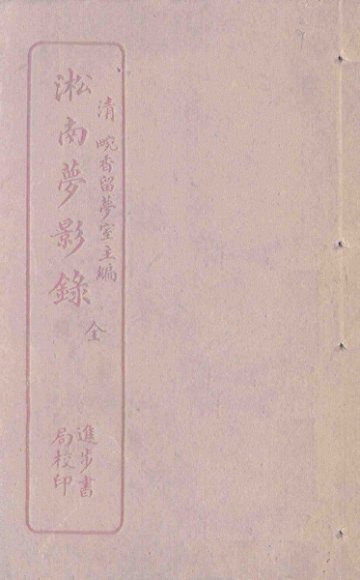 清 畹香留夢室主編
淞南夢影錄 全
進步書
局校印